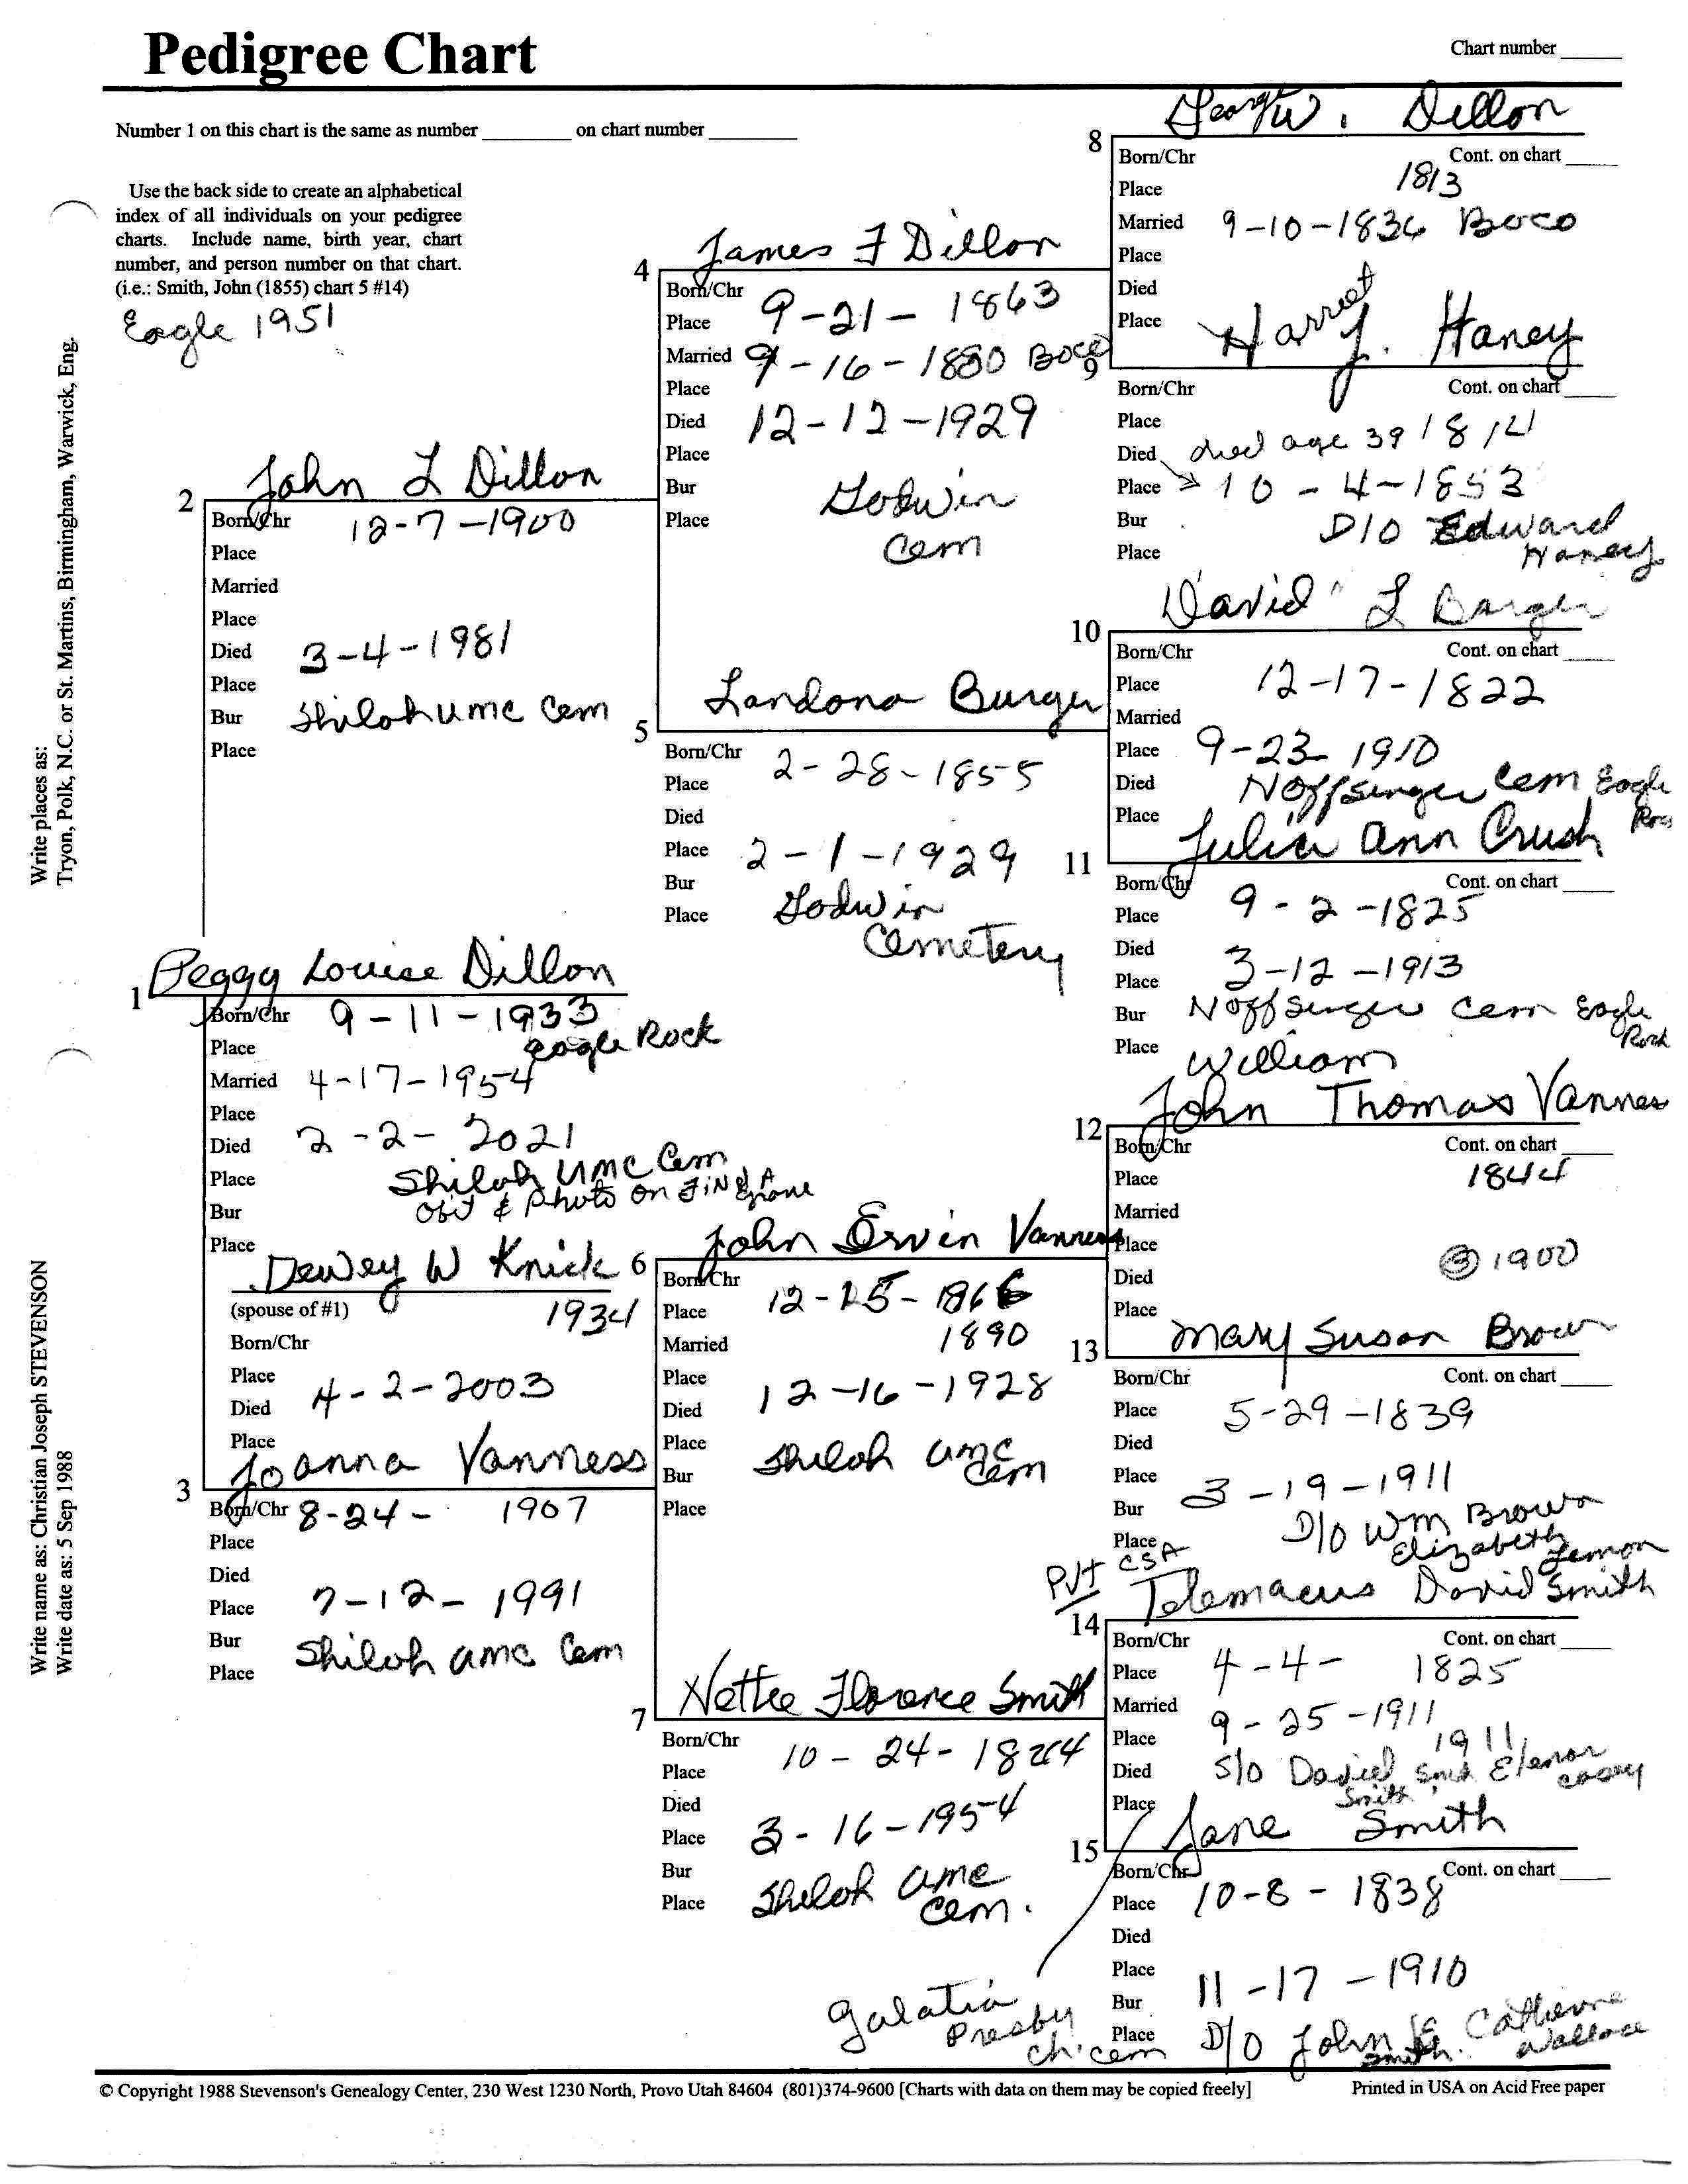 Pedigree Chart
Chart number
Number 1 on this chart is the same as number ________ on chart number ________
Use the back side to create an alphabetical
index of all individuals on your pedigree
charts. Include name, birth year, chart
number, and person number on that chart.
(i.e.: Smith, John (1855) chart 5 #14)
Eagle 1951
Write places as:
Tryon, Polk, N.C. or St. Martins, Birmingham, Warwick, Eng.
Write name as: Christian Joseph STEVENSON
Write date as: 5 Sep 1988
1 Peggy Louise Dillon
Born/Chr 9-11-1933
Place Eagle Rock
Married 4-17-1954
Place
Died 2-2-2021
Place Shiloh UMC Cem
Bur Obit & Photo on FIND A Grave
Place
Dewey W Knick
(spouse of #1) 1934
Born/Chr
Place
Died 4-2-2003
Place
2 John L Dillon
Born/Chr 12-7-1900
Place
Married
Place
Died 3-4-1981
Place
Bur Shiloh UMC Cem
Place
3 Joanna Vanness
Born/Chr 8-24- 1907
Place
Died
Place 7-12-1991
Bur
Place Shiloh UMC Cem
4 James F Dillon
Born/Chr 9-21-1863
Place
Married 9-16-1880 BoCo
Place
Died 12-12-1929
Place
Bur Godwin
Place Cem
5 Landona Burger
Born/Chr 2-28-1855
Place
Died
Place 2-1-1929
Bur
Place Godwin
Cemetery
6 John Ervin Vanness
Born/Chr
Place 12-25-1866
Married 1890
Place
Died 12-16-1928
Place
Bur Shiloh UMC
Cem
Place
7 Nettie Florence Smith
Born/Chr
Place 10-24-
Died
Place 3-16-1954
Bur
Place Shiloh UMC
Cem.
8 George W. Dillon
Born/Chr Cont. on chart
Place 1813
Married 9-10-1836 BoCo
Place
Died
Place
9 Harriet J. Haney
Born/Chr Cont. on chart
Place
Died died age 39 1814
Place 10-4-1853
Bur D/O Edward
Place Haney
10 David L Barger
Born/Chr Cont. on chart
Place 12-17-1822
Married
Place 9-23-1910
Died Noffsinger Cem Eagle
Place Rock
11 Julia Ann Crush
Born/Chr Cont. on chart
Place 9-2-1825
Died
Place 3-12-1913
Bur Noffsinger Cem Eagle
Place Rock
William
12 John Thomas Vannes
Born/Chr Cont. on chart
Place 1844
Married
Place
Died 1900
Place
13 Mary Susan Brown
Born/Chr Cont. on chart
Place 5-29-1839
Died
Place 3-19-1911
Bur D/O Wm Brown
Place Elizabeth Lemon
Pvt CSA
14 Telemacus David Smith
Born/Chr Cont. on chart
Place 4-4- 1825
Married
Place 9-25-1911
1911
Died S/O David Smith Elenor
Place Casey
15 Jane Smith
Born/Chr Cont. on chart
Place 10-8-1838
Died
Place
Bur 11-17-1910
Place D/O John Smith Catherine
Wallace
Galatia
Presby
Ch. Cem
© Copyright 1988 Stevenson's Genealogy Center, 230 West 1230 North, Provo Utah 84604 (801)374-9600 [Charts with data on them may be copied freely]
Printed in USA on Acid Free paper